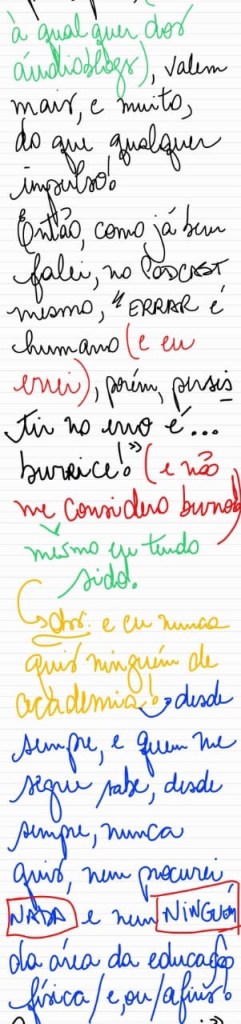 à qualquer dos
áudioblogs), valem
mais, e muito,
do que qualquer
impulso!
Então, como já bem
falei, no PODCAST
mesmo, "ERRAR é
humano (e eu
errei), porém, persis
tir no erro é...
burrice!" (e não
me considero burro)
mesmo eu tendo
sido.
obs. e eu nunca
quis ninguém de
academia! desde
sempre, e quem me
segue sabe, desde
sempre, nunca
quis, nem procurei
NADA e nem NINGUÉM
da área da educação
física/e,ou/afins!